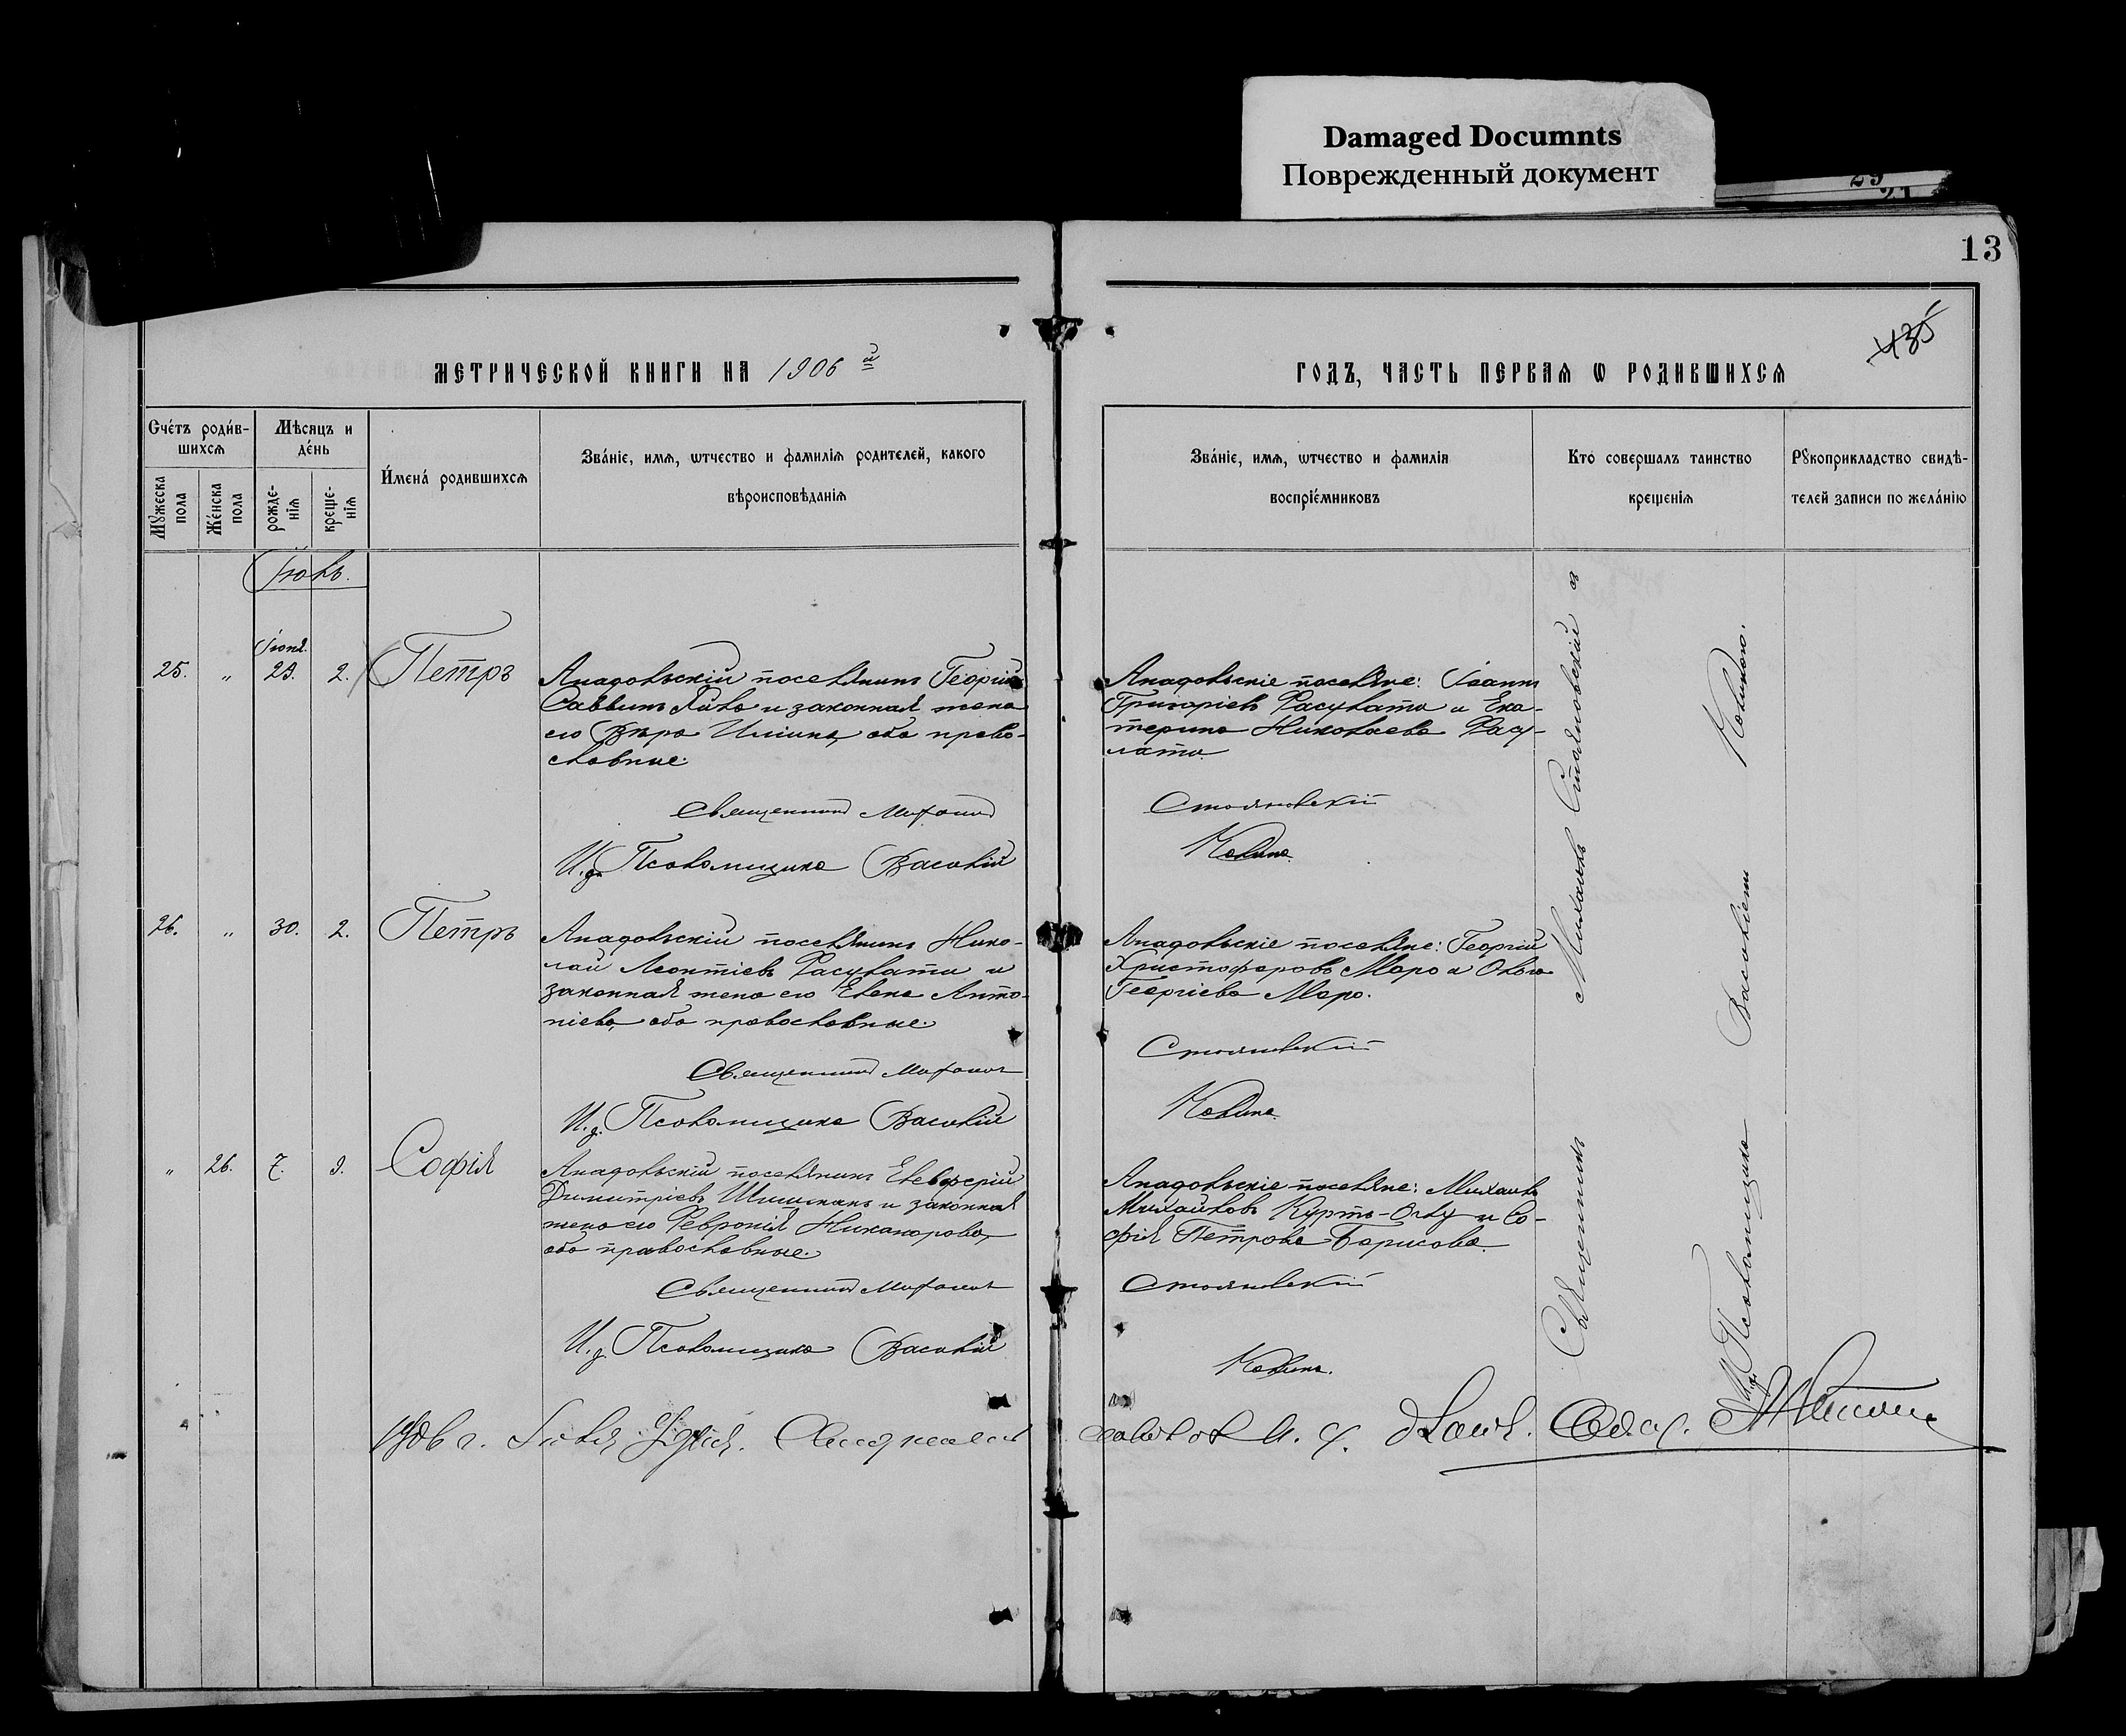 Damaged Documnts
Поврежденный документ
13
435
МЕТРИЧЕСКОЙ КНИГИ НА 1906 й
ГОДЪ, ЧАСТЬ ПЕРВАЯ Ѡ РОДИВШИХСЯ
Счéтъ роди́в-
шихсѧ
Мꙋжеска пола
Жéнска пола
Мѣсяцъ и
дéнь
рожде-
нiѧ
креще-
нiѧ
И́мена́ родившихсѧ
Зва́нiе, имѧ, ѡтчество и фамилiѧ родителей, какого
вѣроисповѣданiѧ
Зва́нiе, имѧ, ѡтчество и фамилiѧ
воспрiéмниковъ
Кто́ совершалъ таинство
крещенiѧ
Рꙋкоприкладство свидѣ-
телей записи по жела́нiю
Іюль.
Іюня
25. " 29. 2. Петръ
Анадольскій поселянинъ Георгій
Саввинъ и законная жена
его Вѣра Иліина, оба право-
славные.
Священникъ Михаилъ
И.д. Псаломщика Василій
Анадольскіе поселяне: Іоаннъ
Григоріевъ Расулати и Ека-
терина Николаева Расу-
лати.
Стояновскій
Калина.
26. " 30. 2. Петръ
Анадольскій поселянинъ Нико-
лай Леонтіевъ Расулати и
законная жена его Елена Анто-
ніева, оба православные.
Священникъ Михаилъ
И.д. Псаломщика Василій
Анадольскіе поселяне: Георгій
Христофоровъ Мара и Ольга
Георгіева Мара.
Стояновскій
Калина.
" 26. 7. 9. Софія
Анадольскій поселянинъ Елевферій
Димитріевъ Шишманъ и законная
жена его Февронія Никанорова,
оба православные.
Священникъ Михаилъ
И.д. Псаломщика Василій
Анадольскіе поселяне: Михаилъ
Михайловъ Куртъ-Оглу и Со-
фія Петрова Борисова.
Стояновскій
Калина.
Священникъ Михаилъ Стояновскій съ
И.д. Псаломщика Василіемъ Калиною.
1906 г. Іюля